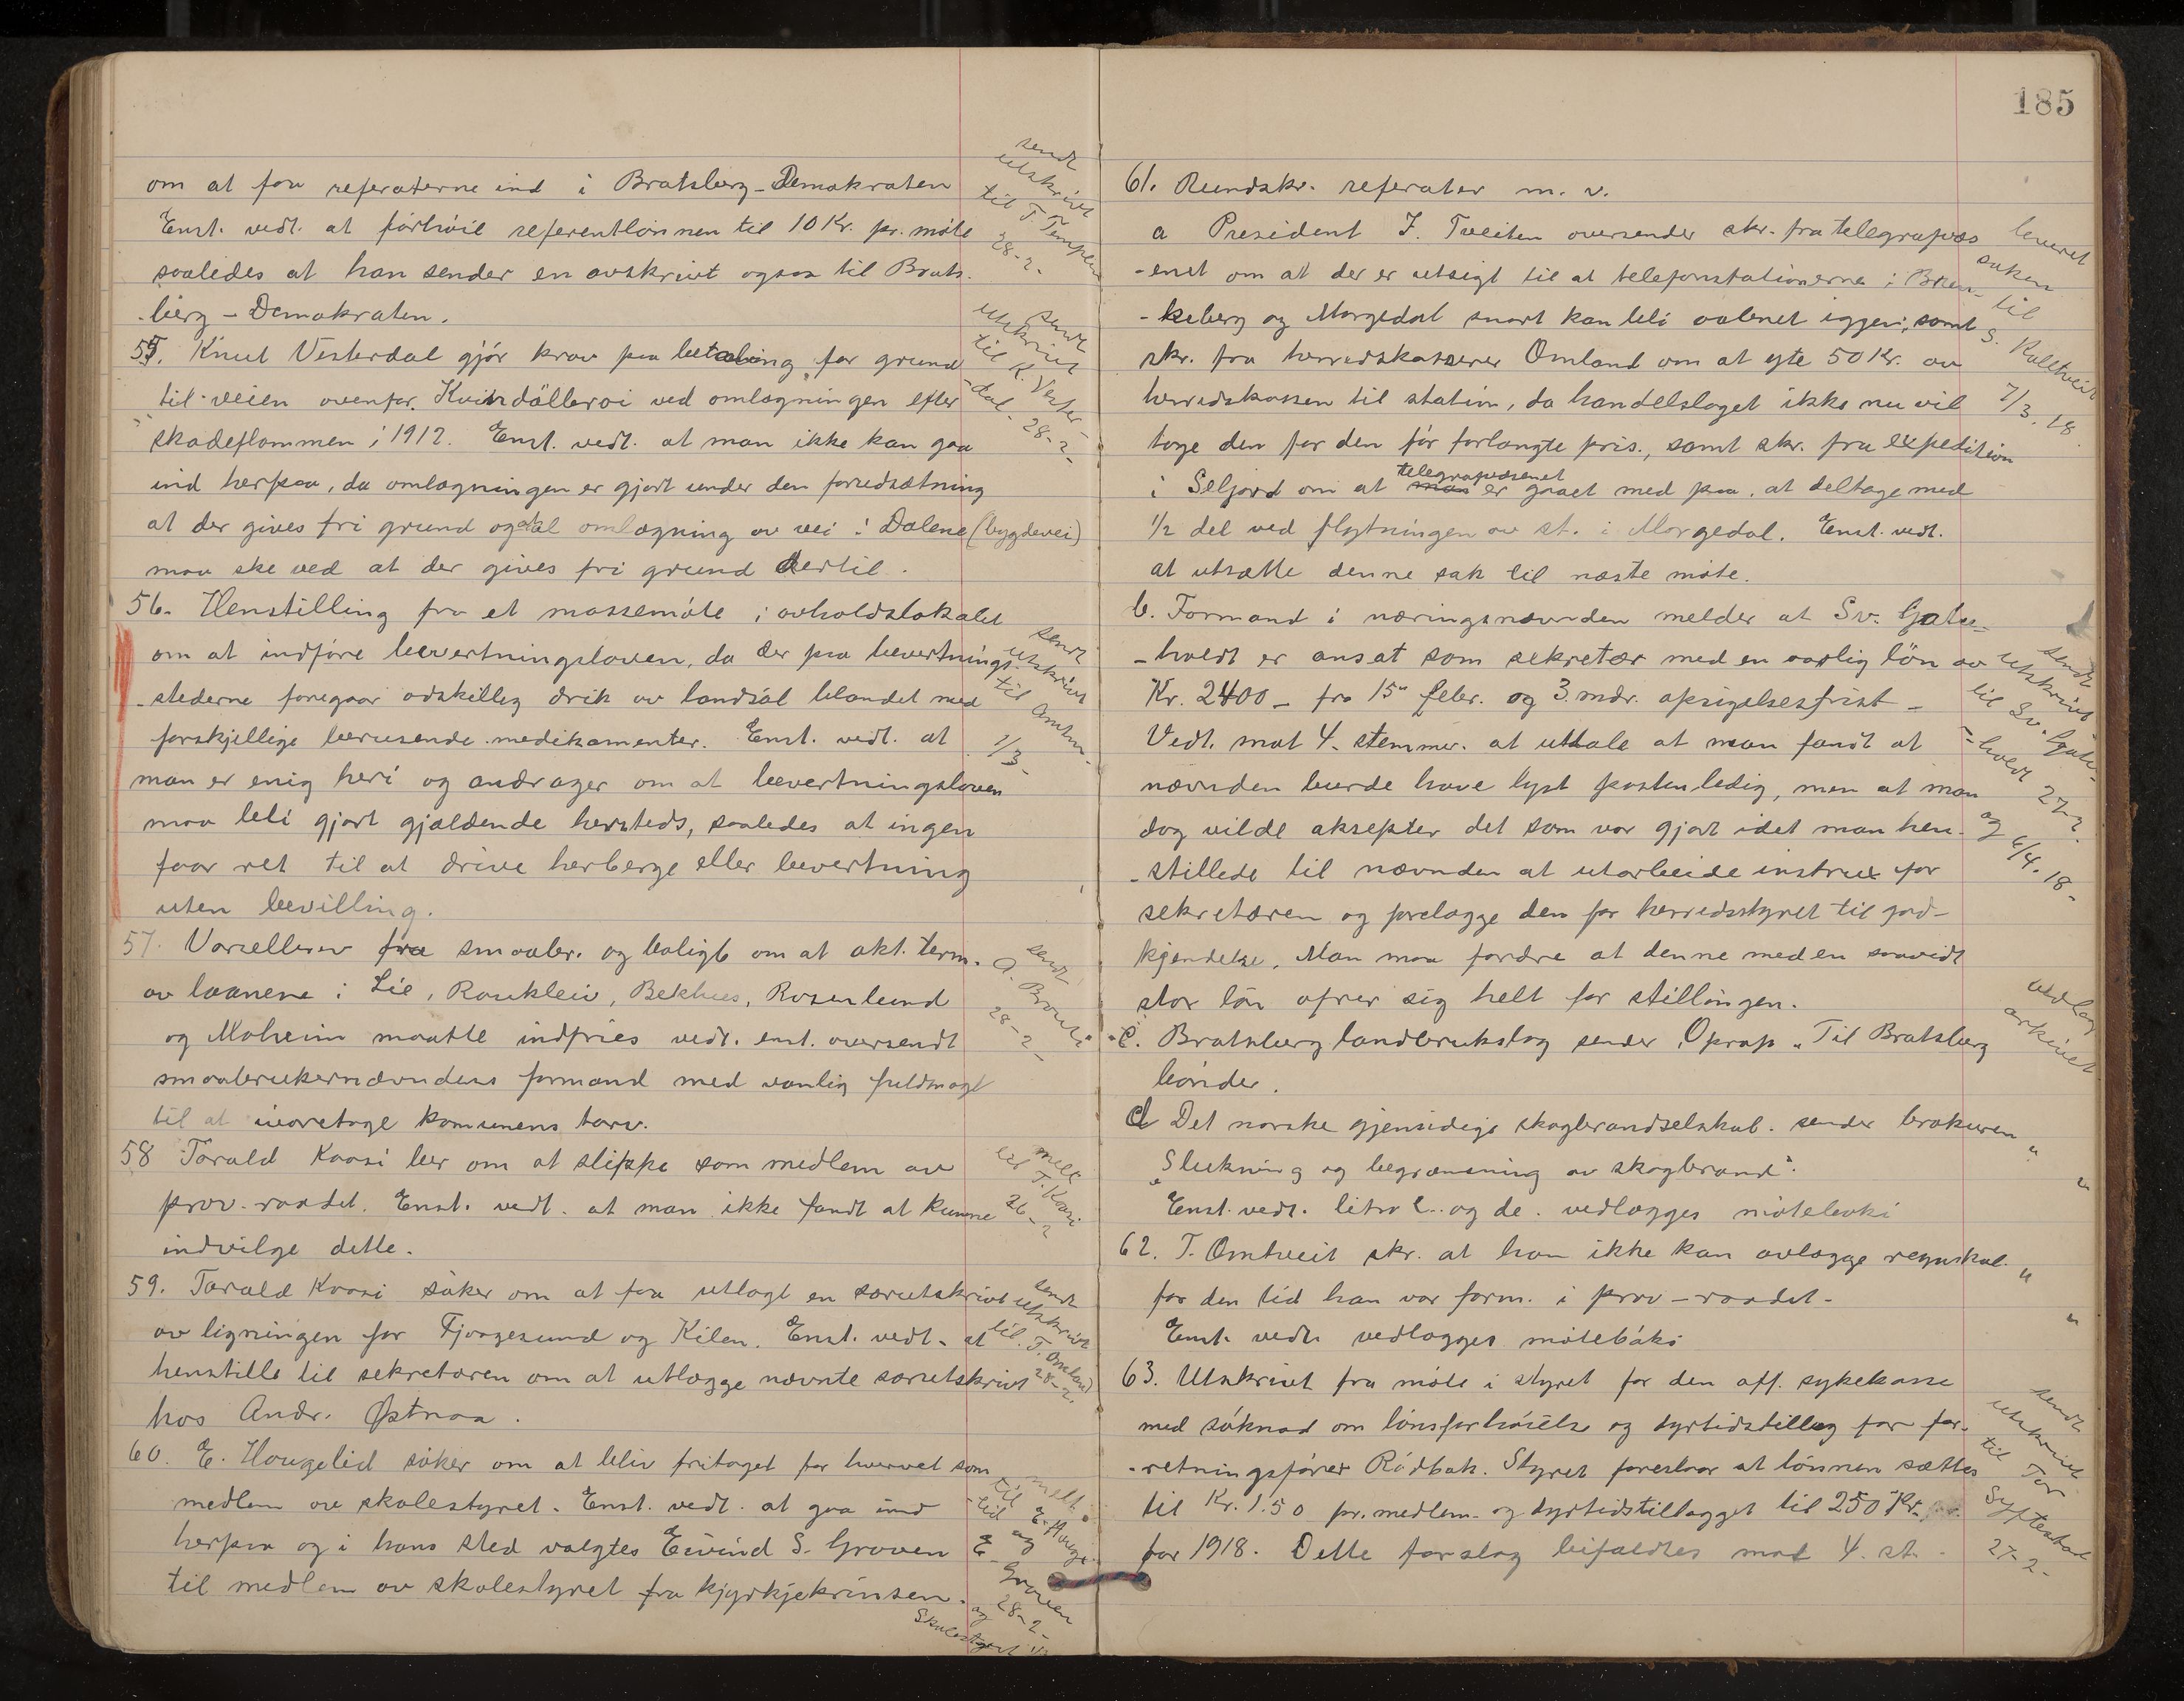 om at faa referaterne ind i Bratsberg-Demokraten
Enst. vedt. at forhöie referentlönnen til 10 Kr. pr. möte
saaledes at han sender en avskrivt ogsaa til Brats-
-berg - Demokraten.
sendt
utskrivt
til T.
28-2-
55. Knut Vesterdal gjör krav paa betaling for grund
til veien ovenfor ved omlægningen efter
skadeflommen i 1912. Enst. vedt. at man ikke kan gaa
ind herpaa, da omlægningen er gjort under den forudsætning
at der gives fri grund og al omlægning av vei i Dalene (bygdevei)
maa ske ved at der gives fri grund dertil.
sendt
utskrivt
til K. Vester-
-dal - 28-2-
56. Henstilling fra et massemöte i avholdslokalet
om at indföre bevertningsloven, da der paa bevertnings-
-stederne foregaar adskillig drik av landsöl blandet med
forskjellige berusende medikamenter. Enst. vedt. at
man er enig heri og andrager om at bevertningsloven
maa bli gjort gjældende hersteds, saaledes at ingen
faar ret til at drive herberge eller bevertning
uten bevilling.
sendt
utskrivt
til Amtm.
1/3-
57. Varselbrev fra smaabr. og boligb om at akt. term.
av laanene i Lie, Roukleiv, Bekhus, Rosenlund
og Moheim maatte indfries vedt. enst. oversendt
smaabrukernævndens formand med vanlig fuldmagt
til at ivaretage komunens tarv.
sendt
A.
28-2-
58 Torald Kaasi ber om at slippe som medlem av
prov.-raadet. Enst. vedt. at man ikke fandt at kunne
indvilge dette.
melt
til T. Kaasi
26-2
59. Torald Kaasi söker om at faa utlagt en særutskrivt
av ligningen for Fjaagesund og Kilen. Enst. vedt. at
henstille til sekretæren om at utlægge nævnte særutskrivt
hos Andr. Østnaa.
sendt
utskrivt
til T. Omland
28-2.
60. E. Haugelid söker om at bliv fritaget for hvervet som
medlem av skolestyret. Enst. vedt. at gaa ind
herpaa og i hans sted valgtes Eivind S. Groven
til medlem av skolestyret fra kjyrkjekrinsen.
melt
til E. Hauge-
-lid og
E. Groven
28-2-
og
Skolestyret
185
61. Rundskr. referater m. v.
a President J. Tveiten oversender skr. fra telegrafvæs
-enet om at der er utsigt til at telefonstationerne i Bren-
-keberg og Morgedal snart kan bli aabnet iggen, samt
skr. fra herredskasserer Omland om at yte 50 Kr. av
herredskassen til station, da handelslaget ikke nu vil
tage den for den för forlangte pris., samt skr. fra expedition
i Seljord om at telegrafvæsenet er gaaet med paa at deltage med
1/2 del ved flytningen av st. i Morgedal. Enst. vedt.
at utsætte denne sak til næste möte.
leveret
saken
til
S. Kulltveit
7/3. 18.
b. Formand i næringsnævnden melder at Sv. Gjate-
-hvedt er ansat som sekretær med en aarlig lön av
Kr. 2400 - fra 15de febr. og 3. mdr. opsigelsesfrist -
Vedt. mot 4. stemmer. at uttale at man fandt at
nævnden burde have lyst posten ledig, men at man
dog vilde aksepter det som var gjort idet man hen-
-stillede til nævnden at utarbeide instrux for
sekretæren og forelægge den for herredsstyret til god-
kjendelse. Man maa fordre at denne med en saavidt
stor lön ofrer sig helt for stillingen.
sendt
utskrivt
til Sv. Gjate-
-hvedt 27-2.
og 6/4. 18-
c. Bratsberg landbrukslag sender Oprop „Til Bratsberg
bönder.
vedlag
arkivet
d Det norske gjensidige skogbrandselskab. sender brosuren
„Slukning og begrænsning av skogbrand".
Enst. vedt. litra c. og de. vedlægges möteboki
62. T. Omtveit skr. at han ikke kan avlægge regnskab.
for den tid han var form. i prov-raadet-
Enst. vedt. vedlægges möteboki
63. Utskrivt fra möte i styret for den off. sykekasse
med söknad om lönsforhöielse og dyrtidstillæg for for-
-retningsförer Rödbak. Styret foreslaar at lönnen sættes
til Kr. 1.50 pr. medlem- og dyrtidstillægget til 250 Kr.
for 1918. Dette forslag bifaldtes mot 4. st.
sendt
utskrivt
til Tor
27-2-